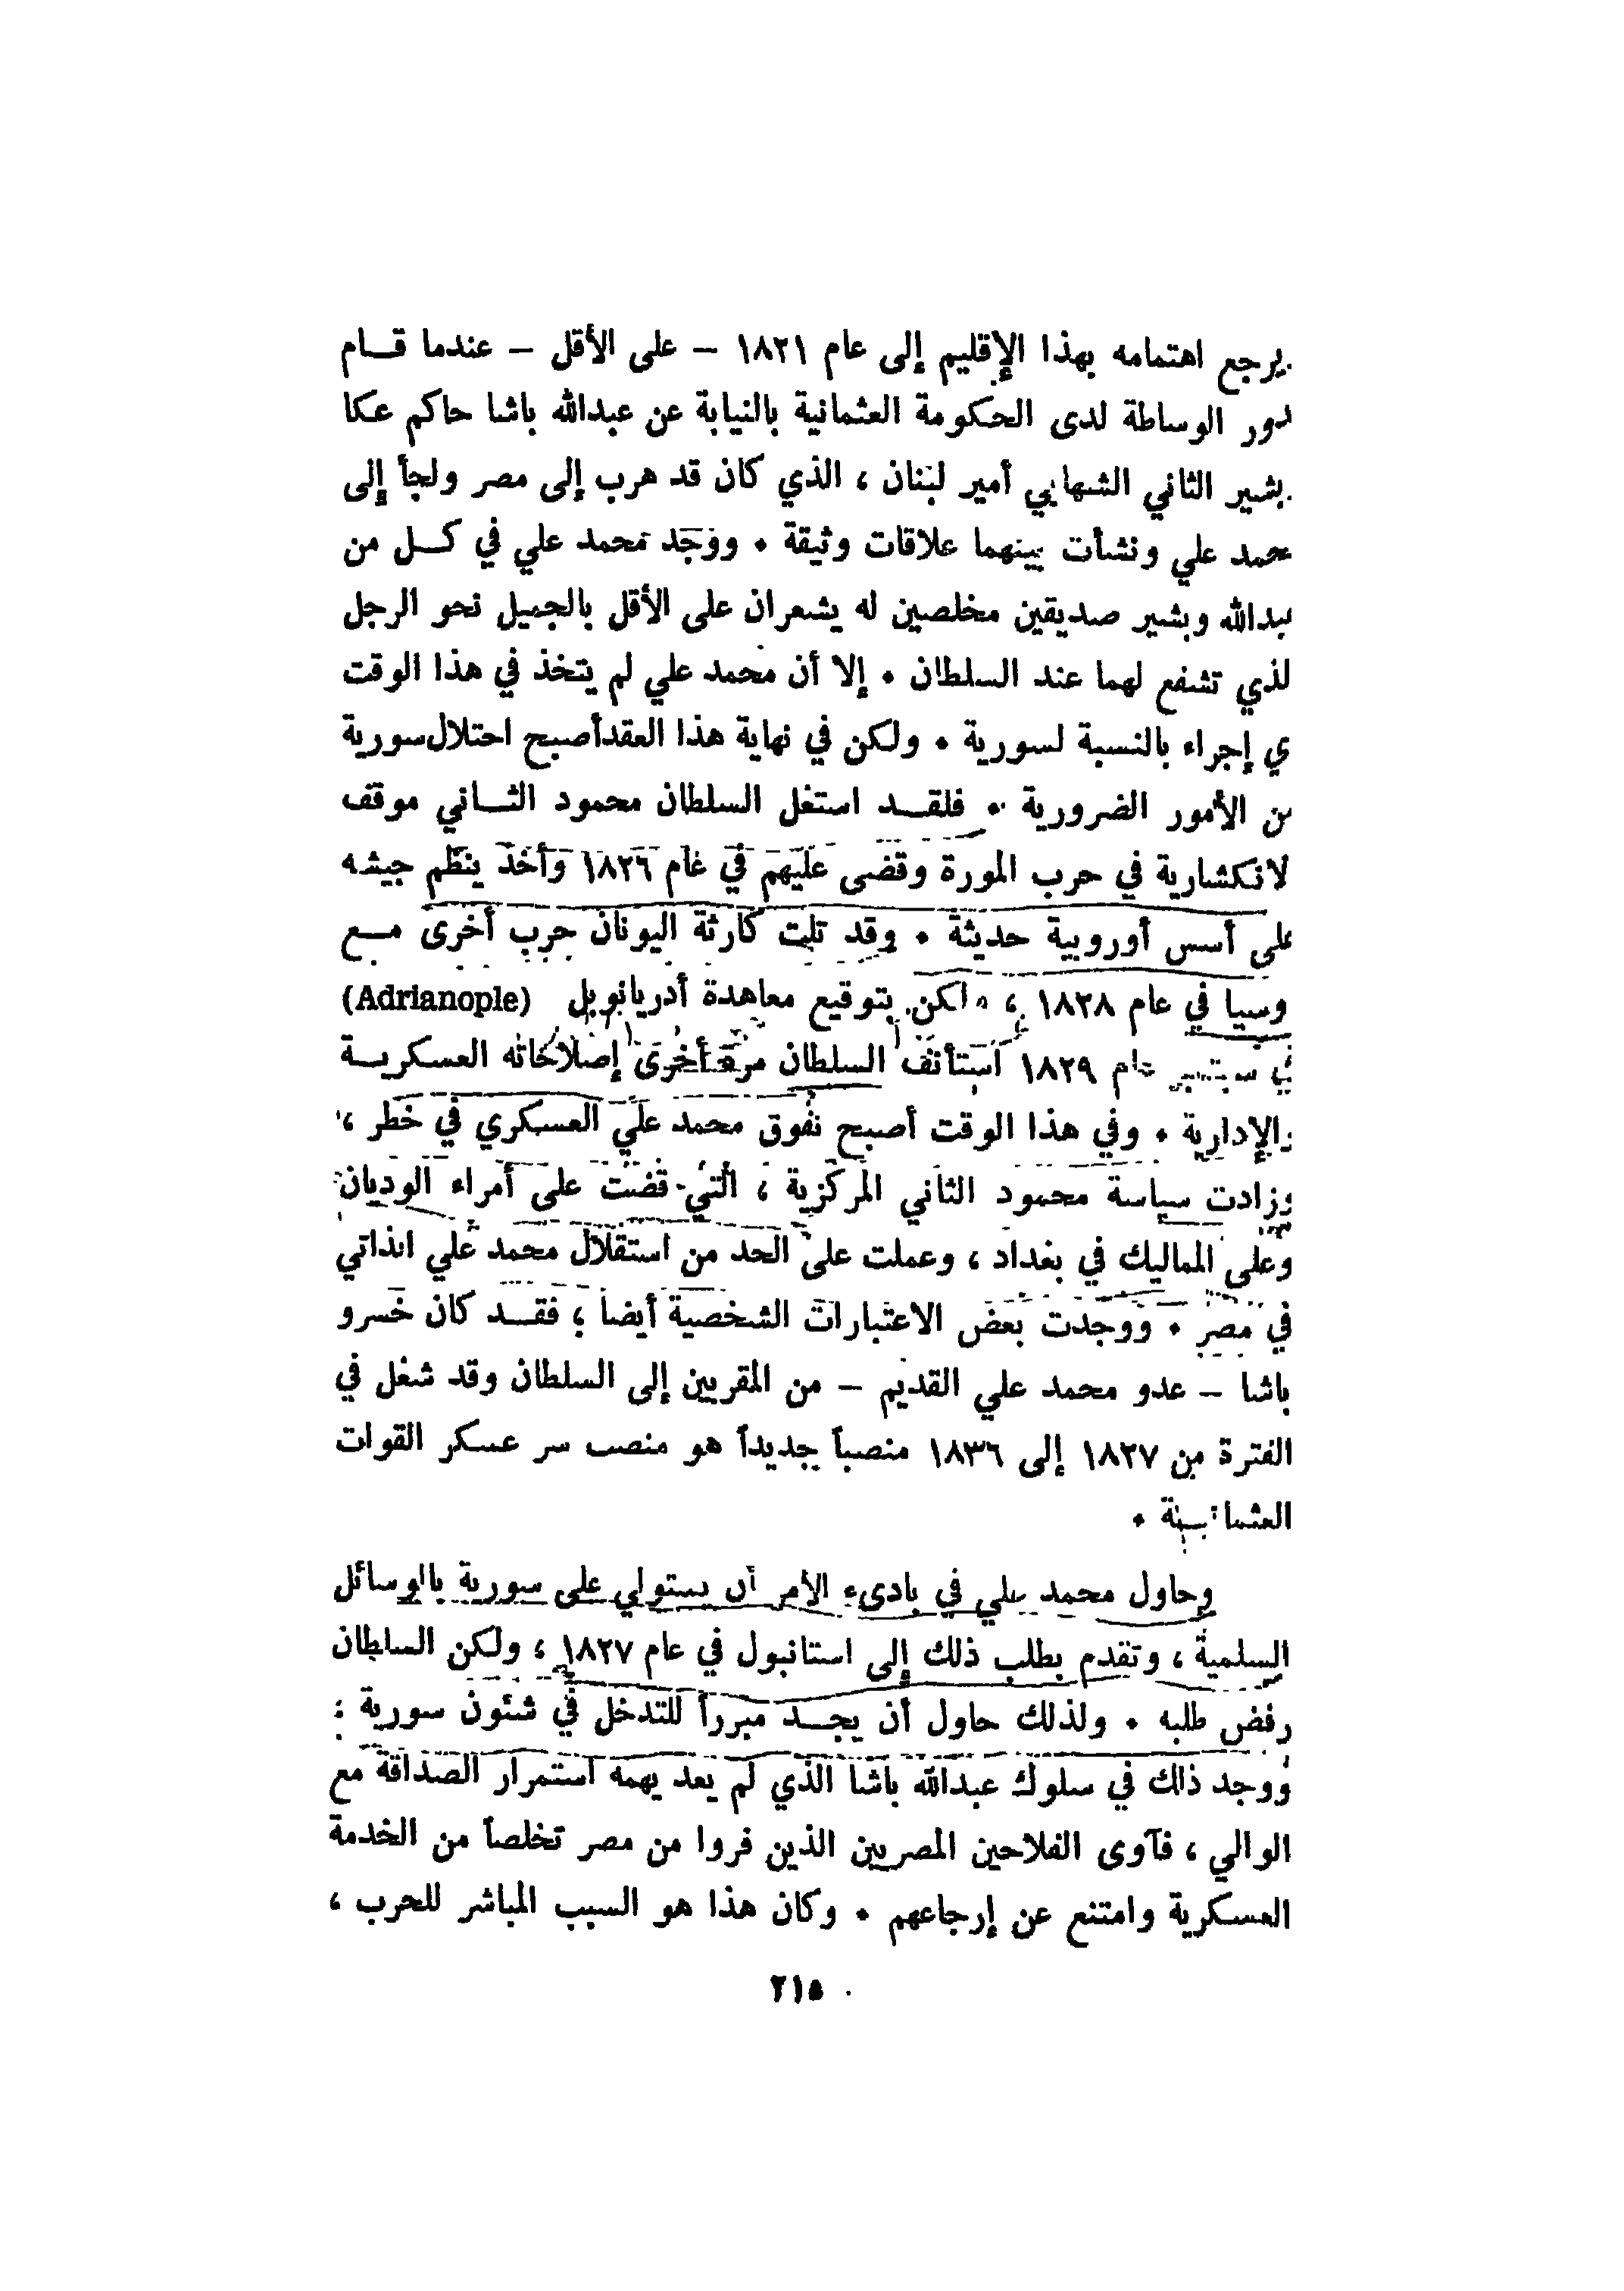 يرجع اهتمامه بهذا الإقليم إلى عام ١٨٢١ – على الأقل – عندما قـــام
دور الوساطة لدى الحكومة العثمانية بالنيابة عن عبدالله باشا حاكم عكا
بشير الثاني الشهابي أمير لبنان ، الذي كان قد هرب إلى مصر ولجأ إلى
محمد علي ونشأت بينهما علاقات وثيقة ٠ ووجد محمد علي في كـــل من
بدالله وبشير صديقين مخلصين له يشعران على الأقل بالجميل نحو الرجل
لذي تشفع لهما عند السلطان ٠ إلا أن محمد علي لم يتخذ في هذا الوقت
ي إجراء بالنسبة لسورية ٠ ولكن في نهاية هذا العقد أصبح احتلال سورية
ن الأمور الضرورية ٠ فلقـــد استغل السلطان محمود الثـــاني موقف
لانكشارية في حرب المورة وقضى عليهم في عام ١٨٢٦ وأخذ ينظم جيشه
على أسس أوروبية حديثة ٠ وقد تلت كارثة اليونان حرب أخرى مـــع
وسيا في عام ١٨٢٨ ، ولكن بتوقيع معاهدة أدريانوبل (Adrianople)
ي سبتمبر عام ١٨٢٩ استأنف السلطان مرة أخرى إصلاحاته العسكريـــة
والإدارية ٠ وفي هذا الوقت أصبح تفوق محمد علي العسكري في خطر ،
وزادت سياسة محمود الثاني المركزية ، التي قضت على أمراء الوديان
وعلى المماليك في بغداد ، وعملت على الحد من استقلال محمد علي الذاتي
في مصر ٠ ووجدت بعض الاعتبارات الشخصية أيضاً ؛ فقـــد كان خسرو
باشا – عدو محمد علي القديم – من المقربين إلى السلطان وقد شغل في
الفترة من ١٨٢٧ إلى ١٨٣٦ منصباً جديداً هو منصب سر عسكر القوات
العثمانية ٠
وحاول محمد علي في بادىء الأمر أن يستولي على سورية بالوسائل
السلمية ، وتقدم بطلب ذلك إلى استانبول في عام ١٨٢٧ ، ولكن السلطان
رفض طلبه ٠ ولذلك حاول أن يجـــد مبرراً للتدخل في شئون سورية ؛
ووجد ذلك في سلوك عبدالله باشا الذي لم يعد يهمه استمرار الصداقة مع
الوالي ، فآوى الفلاحين المصريين الذين فروا من مصر تخلصاً من الخدمة
العسكرية وامتنع عن إرجاعهم ٠ وكان هذا هو السبب المباشر للحرب ،
٢١٥